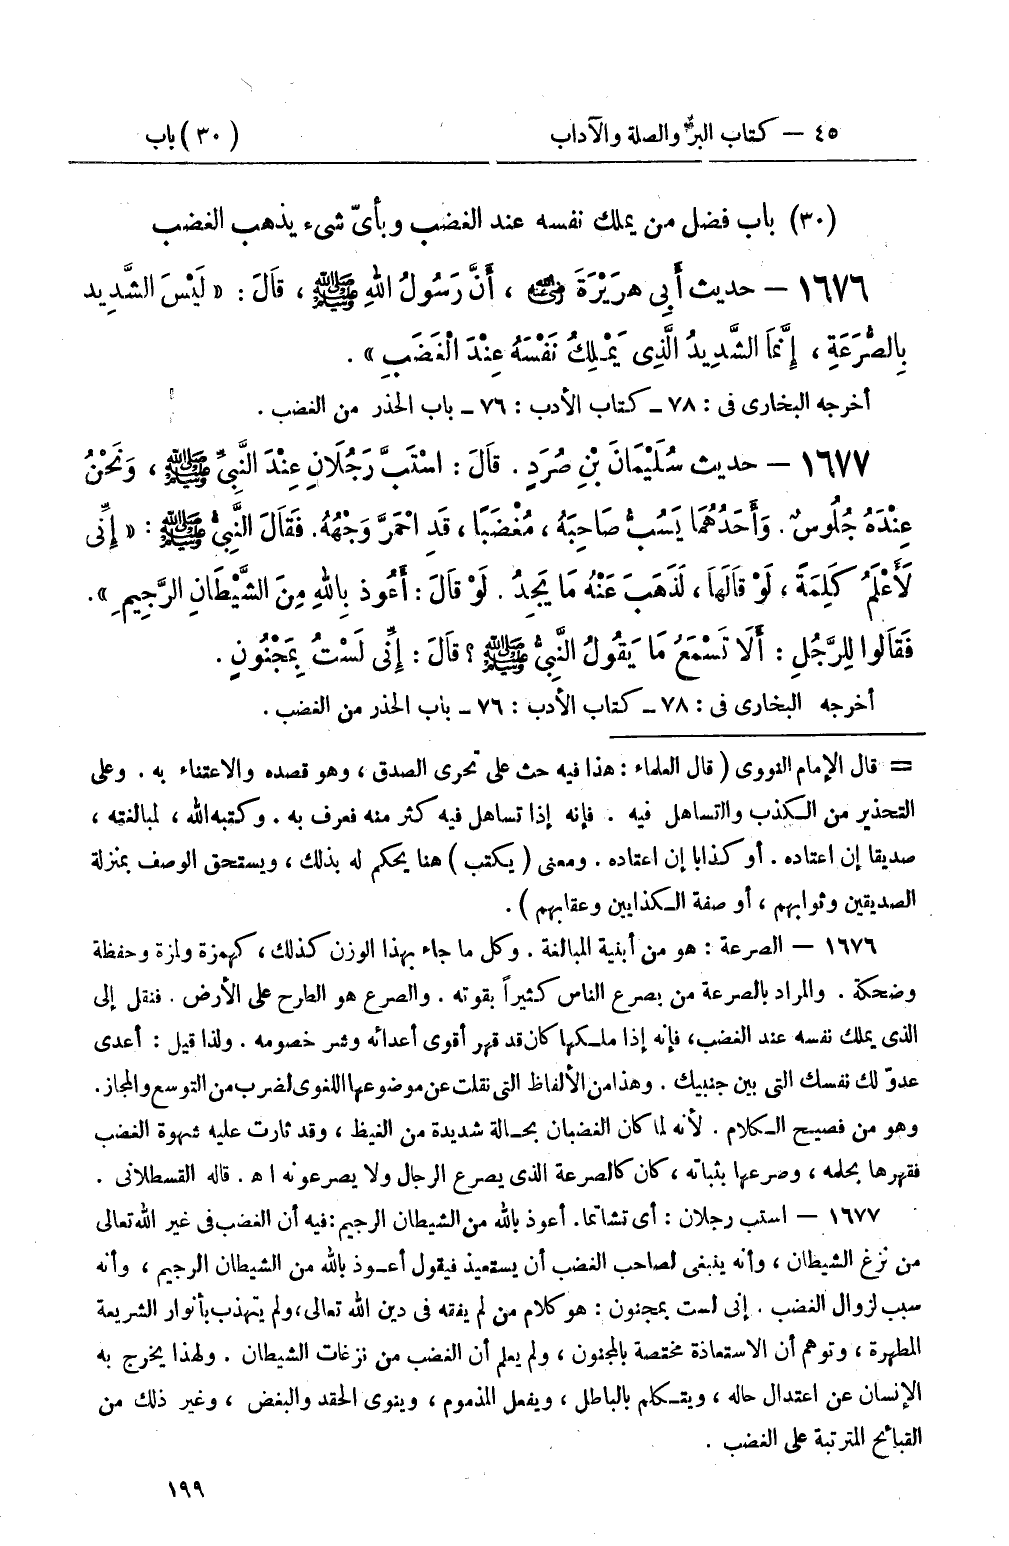 ٤٥ – كتاب البرّ والصلة والآداب (٣٠) باب
(٣٠) باب فضل من يملك نفسه عند الغضب وبأىّ شىء يذهب الغضب
١٦٧٦ – حديث أَبِى هرَيْرَةَ رضي الله عنه ، أَنَّ رَسُولُ اللهِ ﷺ ، قَالَ : « لَيْسَ الشَّدِيد
بِالصُّرَعَةِ ، إِنَّمَا الشَّدِيدُ الَّذِى يَمْلِكُ نَفْسَهُ عِنْدَ الْغَضَبِ » .
أخرجه البخارى فى : ٧٨ – كتاب الأدب : ٧٦ – باب الحذر من الغضب .
١٦٧٧ – حديث سُلَيْمَانَ بْنِ صُرَدٍ . قَالَ : اسْتَبَّ رَجُلَانِ عِنْدَ النَّبِيِّ ﷺ ، وَنَحْنُ
عِنْدَهُ جُلُوسٌ . وَأَحَدُهُمَا يَسُبُّ صَاحِبَهُ ، مُغْضَبًا ، قَدِ احْمَرَّ وَجْهُهُ. فَقَالَ النَّبِيُّ ﷺ : « إِنِّى
لَأَعْلَمُ كَلِمَةً ، لَوْ قَالَهَا ، لَذَهَبَ عَنْهُ مَا يَجِدُ . لَوْ قَالَ : أَعُوذ بِاللهِ مِنَ الشَّيْطَانِ الرَّجِيمِ ».
فَقَالُوا لِلرَّجُلِ : أَلَا تَسْمَعُ مَا يَقُولُ النَّبِيُّ ﷺ ؟ قَالَ : إِنِّى لَسْتُ بِمَجْنُونٍ .
أخرجه البخارى فى : ٧٨ – كتاب الأدب : ٧٦ – باب الحذر من الغضب .
= قال الإمام النووى ( قال العلماء : هذا فيه حث على تحرى الصدق ، وهو قصده والاعتناء به . وعلى
التحذير من الكذب والتساهل فيه . فإنه إذا تساهل فيه كثر منه فعرف به . وكتبه الله ، لمبالغته ،
صديقا إن اعتاده . أو كذابا إن اعتاده . ومعنى ( يكتب ) هنا يحكم له بذلك ، ويستحق الوصف بمنزلة
الصديقين وثوابهم ، أو صفة الكذابين وعقابهم ) .
١٦٧٦ – الصرعة : هو من أبنية المبالغة . وكل ما جاء بهذا الوزن كذلك ، كهمزة ولمزة وحفظة
وضحكة . والمراد بالصرعة من يصرع الناس كثيراً بقوته . والصرع هو الطرح على الأرض . فنقل إلى
الذى يملك نفسه عند الغضب، فإنه إذا ملكها كان قد قهر أقوى أعدائه وشر خصومه . ولذا قيل : أعدى
عدوّ لك نفسك التى بين جنبيك . وهذا من الألفاظ التى نقلت عن موضوعها اللغوى لضرب من التوسع والمجاز.
وهو من فصيح الكلام . لأنه لما كان الغضبان بحالة شديدة من الغيظ ، وقد ثارت عليه شهوة الغضب
فقهرها بحلمه ، وصرعها بثباته ، كان كالصرعة الذى يصرع الرجال ولا يصرعونه اﻫ . قاله القسطلانى .
١٦٧٧ – استب رجلان : أى تشاتما. أعوذ بالله من الشيطان الرجيم : فيه أن الغضب فى غير الله تعالى
من نزغ الشيطان ، وأنه ينبغى لصاحب الغضب أن يستعيذ فيقول أعوذ بالله من الشيطان الرجيم ، وأنه
سبب لزوال الغضب . إنى لست بمجنون : هو كلام من لم يفقه فى دين الله تعالى، ولم يتهذب بأنوار الشريعة
المطهرة ، وتوهم أن الاستعاذة مختصة بالمجنون ، ولم يعلم أن الغضب من نزغات الشيطان . ولهذا يخرج به
الإنسان عن اعتدال حاله ، ويتكلم بالباطل ، ويفعل المذموم ، وينوى الحقد والبغض ، وغير ذلك من
القبائح المترتبة على الغضب .
١٩٩